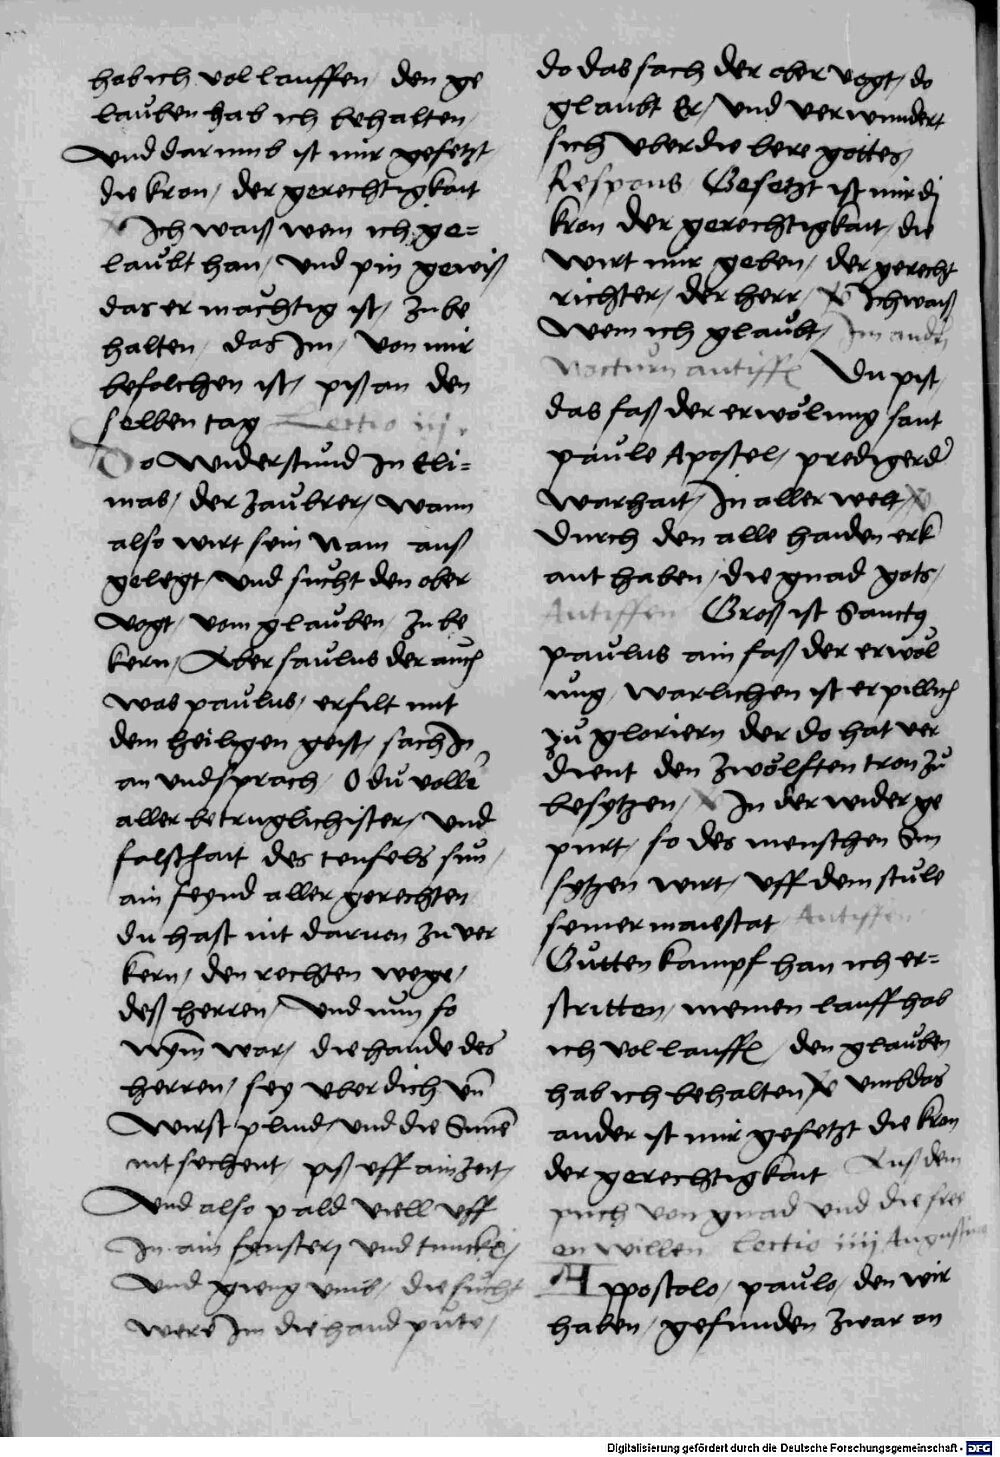 hab ich vol lauffen den ge
lauben hab ich behalten,
Und darumb ist mir gesetzt,
die kron, der gerechtigkait
Ich waiß wem ich ge=
laubt han, Und pin gewiß
das er machtig ist, zu be
halten, das Im, von mir
befolchen ist, piß an den
selben tag Lectio iij.
Do Widerstund In Eli=
mas, der zaubrer, wann
also wirt sein Nam auß
gelegt, Und sucht den ober
Vogt, vom glauben, zu be
kern, Aber saulus der auch
was paulus, erfilt mit
dem heiligen geist, sach In
an und sprach, O du voller
aller betruglichister, Und
falschait des teufels sun,
ain feynd aller gerechten
du hast nit daruon zu ver
kern, den rechten wege,
deß herren, Und nun so
nym war, die hande des
herren, sey uber dich un̄
Wirst plind, und die Sunē
nit sechent, piß uff ain zeit,
Und also pald viell uff
In ain fynsterj und tunckel,
Und gieng umb, die sucht
were Im die hand pute,
do das sach der ober vogt, do
glaubt Er, Und verwundert
sich uber die lere gottes,
Respons Gesetzt ist mir dj
kron der gerechtigkait, die
wirt mir geben, der gerecht
richter, der herr, Ich waiß
wem ich glaubt, Im andn
Nocturn antiffē Du pist,
das faß der erwölung sant
paule Apostel, prediger dˀ
Warhait, In aller welt,
Durch den alle haiden erk
ant haben, die gnad gots,
Antiffen Groß ist Sanctꝰ
paulus ain faß der erwöl
ung, warlichen ist er pillich
zu gloriern der do hat ver
dient den zwölften tron zu
besytzen, In der wider ge
purt, so des menschen Sun
sytzen wirt, uff dem stule
seiner maiestat Antiffen
Gutten kampf han ich er=
stritten, meinen lauff hab
ich vol lauffē, den glauben
hab ich behalten, umb das
ander ist mir gesetzt die kron
der gerechtigkait Auß dem
puch von gnad und die frei
en willen Lectio iiij Augustinus
Appostolo, paulo, den wir
haben, gefunden zwar on
Digitalisierung gefördert durch die Deutsche Forschungsgemeinschaft - DFG